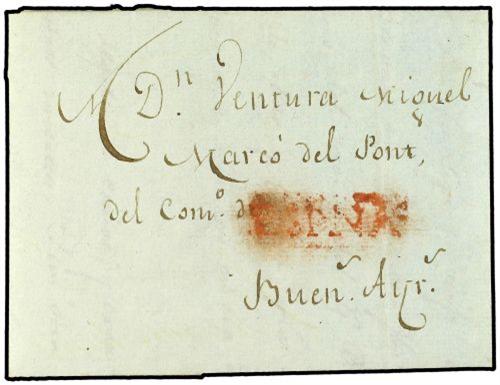 A Dn. Ventura Miguel
Marcó del Pont,
del Como. d
Buens. Ayrs.